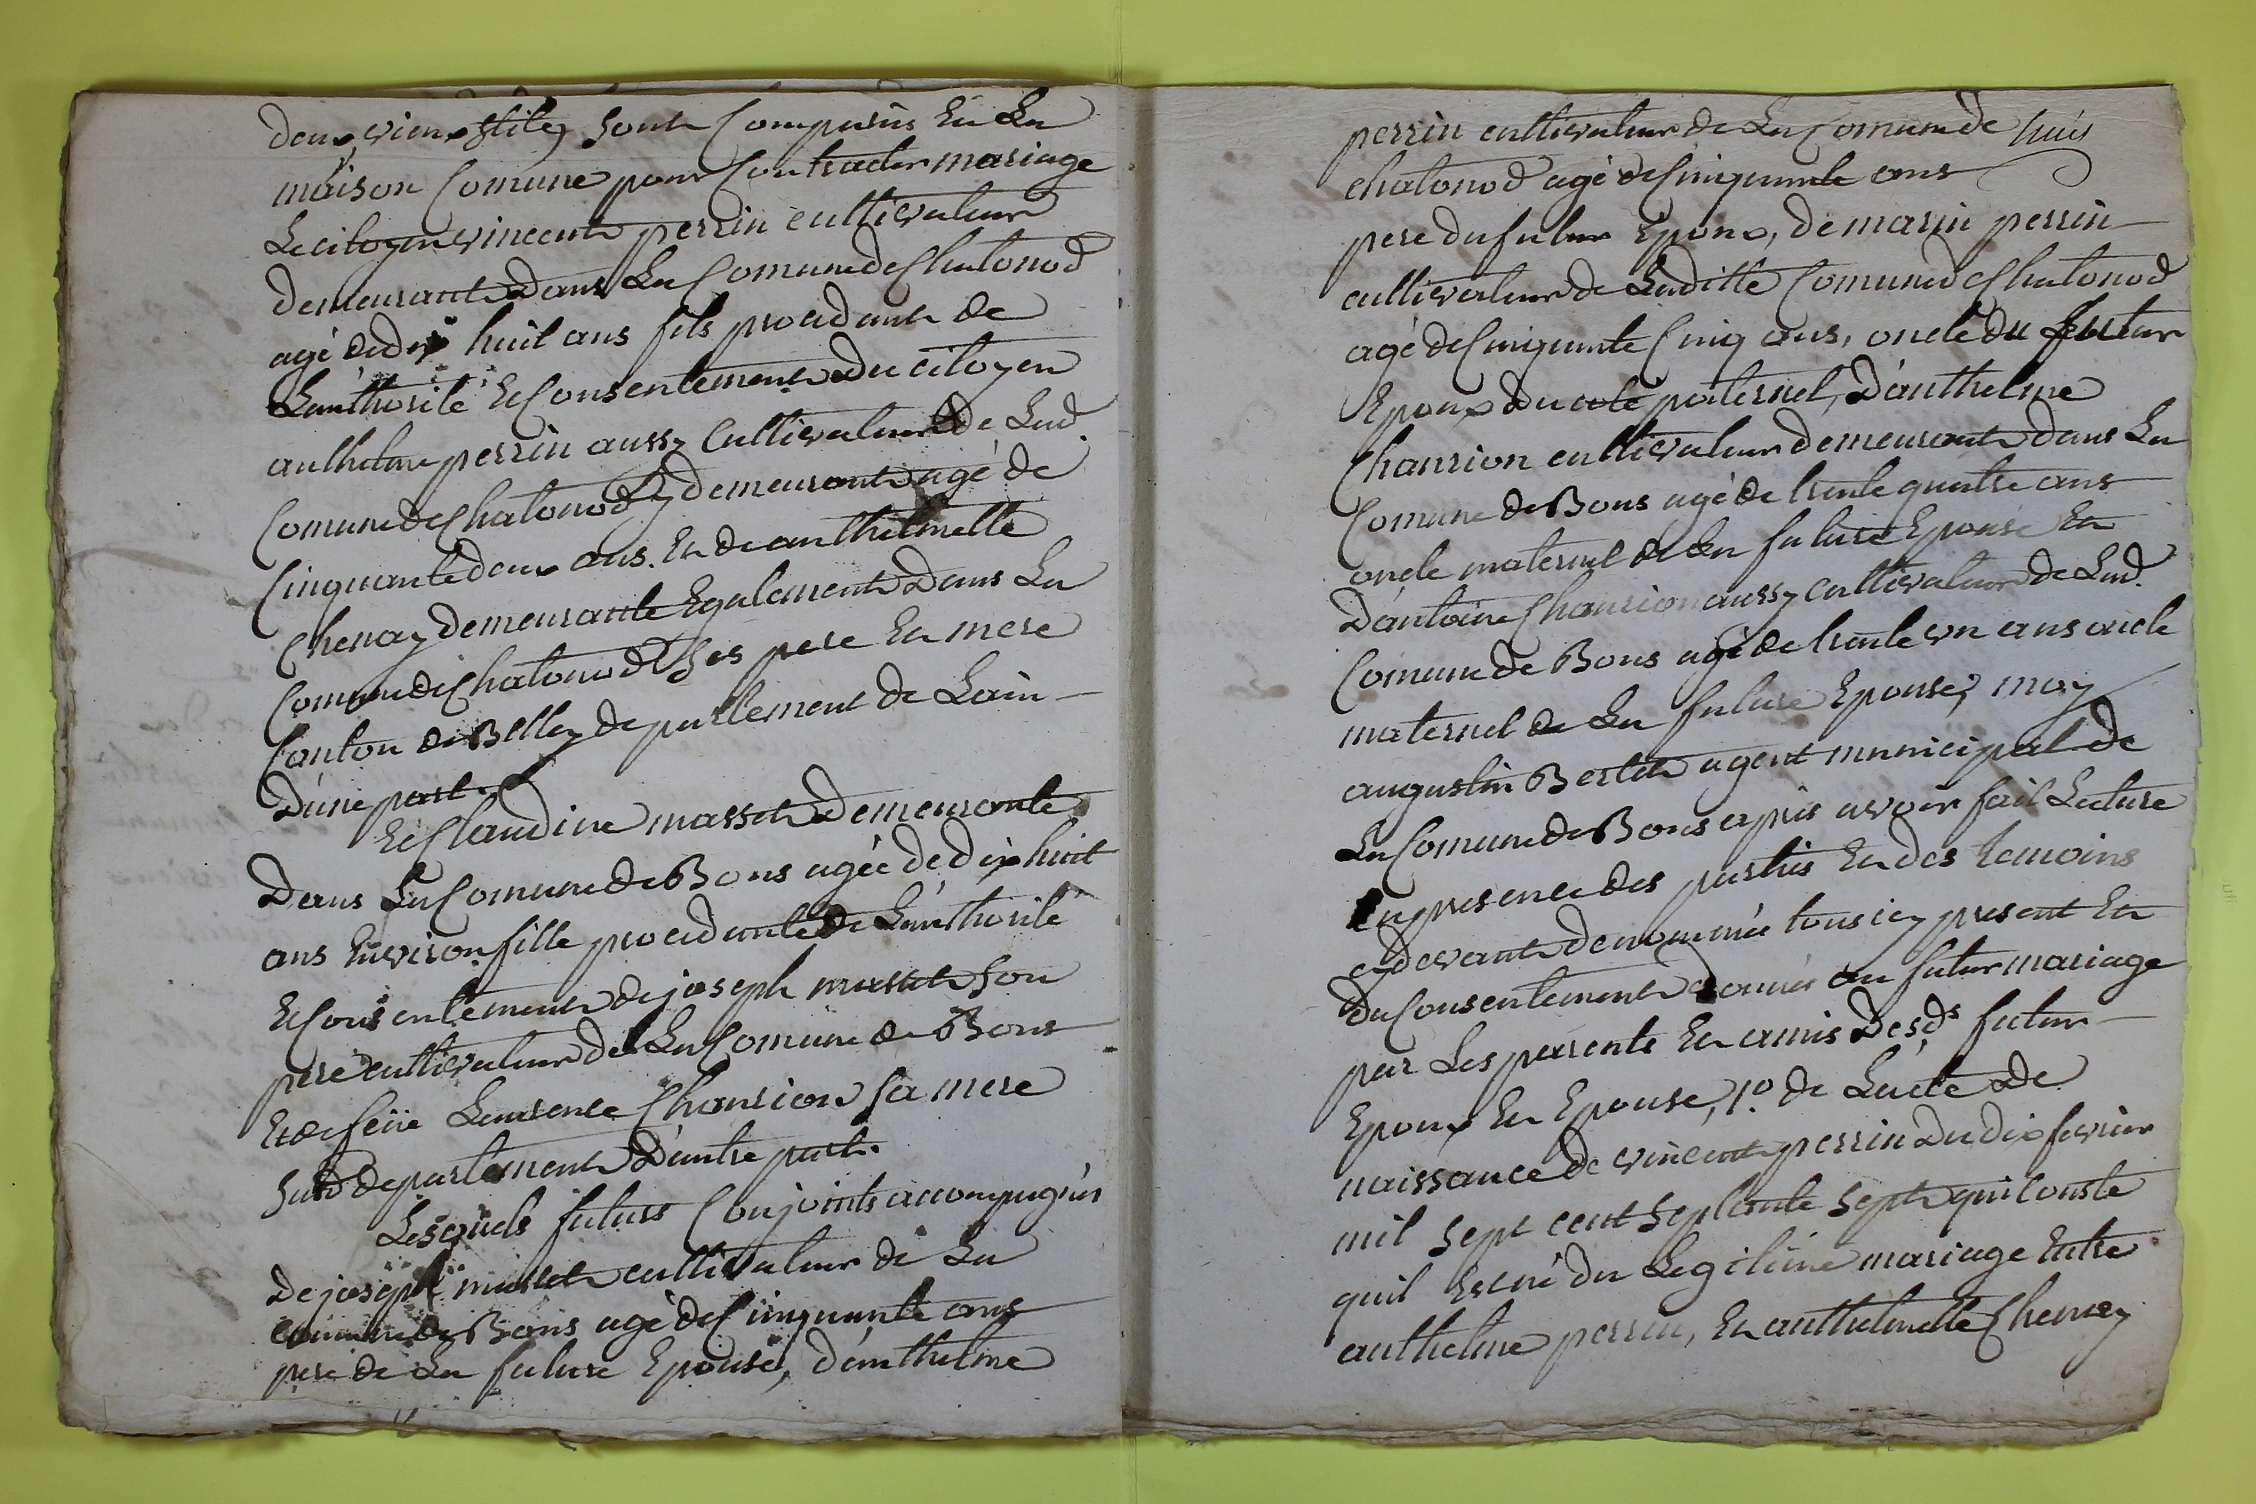 deux vieux stile, sont Comparus En La
maison Comune pour Contracter mariage
Le citoyen vincent perrin cultivateur
demeurant Dans La Comune de Chatonod
agé de dix huit ans fils procedant de
L'authorité Et Consentement Du citoyen
anthelme perrin aussy Cultivateur de Lad.
Comune de Chatonod y demeurant agé de
Cinquante deux ans. Et de anthelmette
Chenay demeurante Egalement Dans La
Comune de Chatonod Ses pere Et mere
Canton de Belley departement de Lain
D'une part.
Et Claudine masset Demeurante
Dans La Comune de Bons agée de dix huit
ans Environ fille procedante de L'authorité
Et Consentement de joseph masset son
pere cultivateur de La Comune de Bons
Et de feüe Laurence Chanrion sa mere
Susd. departement D'autre part.
Lesquels futurs Conjoints accompagnés
De joseph masset cultivateur de La
Comune de Bons agé de Cinquante ans
pere de La future Epouse, d'anthelme
perrin cultivateur de La Comune de
chatonod agé de Cinquante ans
pere du futur Epoux, de marin perrin
cultivateur de Laditte Comune de Chatonod
agé de Cinquante Cinq ans, oncle du futur
Epoux du coté paternel, D'anthelme
Chanrion cultivateur demeurant dans La
Comune de Bons agé de trente quatre ans
oncle maternel de La future Epouse Et
D'antoine Chanrion aussy cultivateur de Lad.
Comune de Bons agé de trente un ans oncle
maternel de La future Epouse, moy
augustin Bertet agent municipal de
La Comune de Bons apres avoir fait Lecture
En presence des parties Et des temoins
cy devant denommée tous icy present Et
du Consentement donné au futur mariage
par Les parents Et amis Desds futur
Epoux Et Epouse, 1o. de L'acte de
naissance de vincent perrin du dix fevrier
mil sept cent septente sept qui Conste
quil Est né du Legitime mariage Entre
anthelme perrin, Et anthelmette Chenay